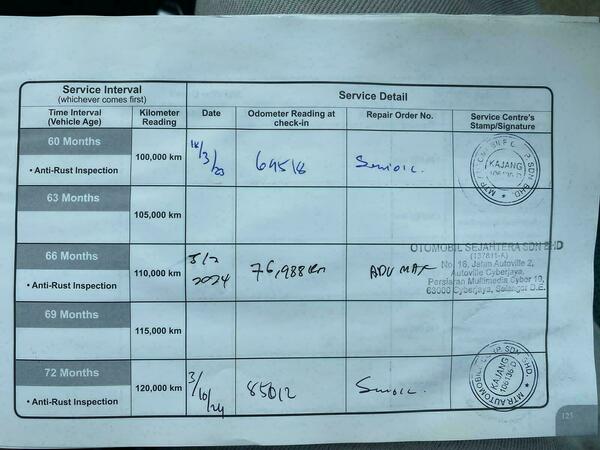 Service Interval
(whichever comes first)
Service Detail
Time Interval
(Vehicle Age)
Kilometer
Reading
Date
Odometer Reading at
check-in
Repair Order No.
Service Centre's
Stamp/Signature
60 Months
• Anti-Rust Inspection
100,000 km
69518
KAJANG
SDN BHD.
63 Months
105,000 km
66 Months
• Anti-Rust Inspection
110,000 km
2024
76,988 km
ADV MAX
OTOMOBIL SEJAHTERA SDN BHD
(137811-K)
No. 16, Jalan Autoville 2,
Autoville Cyberjaya,
Persiaran Multimedia Cyber 10,
63000 Cyberjaya, Selangor D.E.
69 Months
115,000 km
72 Months
• Anti-Rust Inspection
120,000 km
3/10/24
85012
MTR AUTOMOBILE CORP. SDN BHD.
KAJANG
125